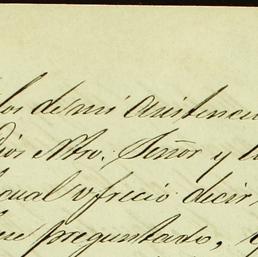 los de mi asistenci
Dios Ntro. Señor y
cual ofreció decir
fue preguntado,